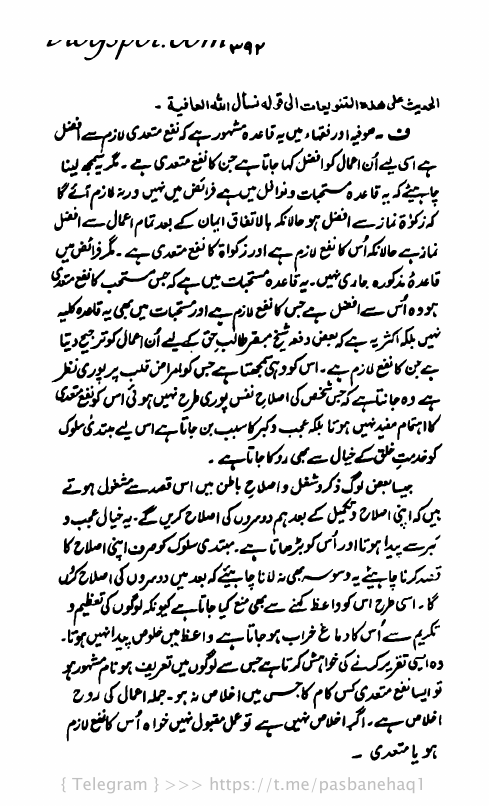 ۳۹۲
الحدیث علی ھذہ التنویعات الی قولہ نسأل اللہ العافیۃ ۔
ف ۔ صوفیہ اور فقہاء میں یہ قاعدہ مشہور ہے کہ نفع متعدی لازم سے افضل
ہے اسی لیے اُن اعمال کو افضل کہا جاتا ہے جن کا نفع متعدی ہے ۔ مگر یہ سمجھ لینا
چاہیئے کہ یہ قاعدہ مستحبات و نوافل میں ہے فرائض میں نہیں ورنہ لازم آئے گا
کہ زکوٰۃ نماز سے افضل ہو حالانکہ بالاتفاق ایمان کے بعد تمام اعمال سے افضل
نماز ہے حالانکہ اُس کا نفع لازم ہے اور زکواۃ کا نفع متعدی ہے ۔ مگر فرائض میں
قاعدۂ مذکورہ جاری نہیں ۔ یہ قاعدہ مستحبات میں ہے کہ جس مستحب کا نفع متعدی
ہو وہ اُس سے افضل ہے جس کا نفع لازم ہے اور مستحبات میں بھی یہ قاعدہ کلیہ
نہیں بلکہ اکثریہ ہے کہ بعض دفعہ شیخ مبصر طالب حق کے لیے اُن اعمال کو ترجیح دیتا
ہے جن کا نفع لازم ہے ۔ اس کو وہی سمجھتا ہے جس کو امراض قلب پر پوری نظر
ہے وہ جانتا ہے کہ جس شخص کی اصلاح نفس پوری طرح نہیں ہوئی اس کو نفع متعدی
کا اہتمام مفید نہیں ہوتا بلکہ عجب و کبر کا سبب بن جاتا ہے اس لیے مبتدی سلوک
کو خدمت خلق کے خیال سے بھی روکا جاتا ہے ۔
جیسا بعض لوگ ذکر و شغل و اصلاح باطن میں اس قصد سے مشغول ہوتے
ہیں کہ اپنی اصلاح و تکمیل کے بعد ہم دوسروں کی اصلاح کریں گے ۔ یہ خیال عجب و
کبر سے پیدا ہوتا اور اُس کو بڑھاتا ہے ۔ مبتدی سلوک کو صرف اپنی اصلاح کا
قصد کرنا چاہیئے یہ وسوسہ بھی نہ لانا چاہیئے کہ بعد میں دوسروں کی اصلاح کروں
گا ۔ اسی طرح اس کو واعظ کہنے سے بھی منع کیا جاتا ہے کیونکہ لوگوں کی تعظیم و
تکریم سے اُس کا دماغ خراب ہو جاتا ہے واعظ میں خلوص پیدا نہیں ہوتا ۔
وہ ایسی تقریر کرنے کی خواہش کرتا ہے جس سے لوگوں میں تعریف ہو نام مشہور ہو
تو ایسا نفع متعدی کس کام کا جس میں اخلاص نہ ہو ۔ جملہ اعمال کی روح
اخلاص ہے ۔ اگر اخلاص نہیں ہے تو عمل مقبول نہیں خواہ اُس کا نفع لازم
ہو یا متعدی ۔
{ Telegram } >>> https://t.me/pasbanehaq1